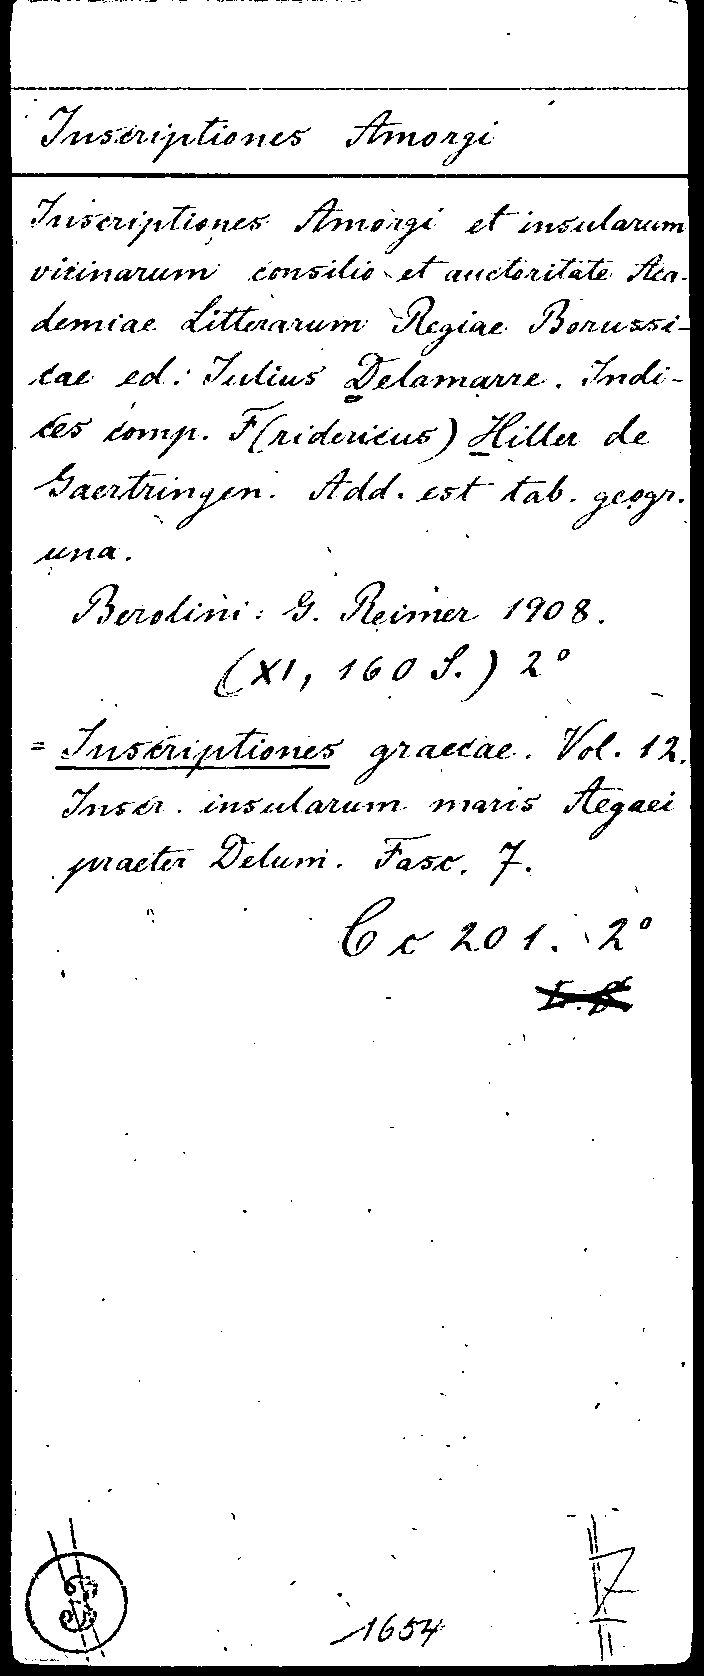 Inscriptiones Amorgi
Inscriptiones Amorgi et insularum
vicinarum consilio et auctoritate Aca-
demiae Litterarum Regiae Borussi-
cae ed: Iulius Delamarre. Indi-
ces comp. F(ridericus) Hiller de
Gaertringen. Add. est tab. geogr.
una.
Berolini: G. Reimer 1908.
(XI, 160 S.) 2°
= Inscriptiones graecae. Vol. 12.
Inscr. insularum maris Aegaei
praeter Delum. Fasc. 7.
Cc 201. 2°
1654